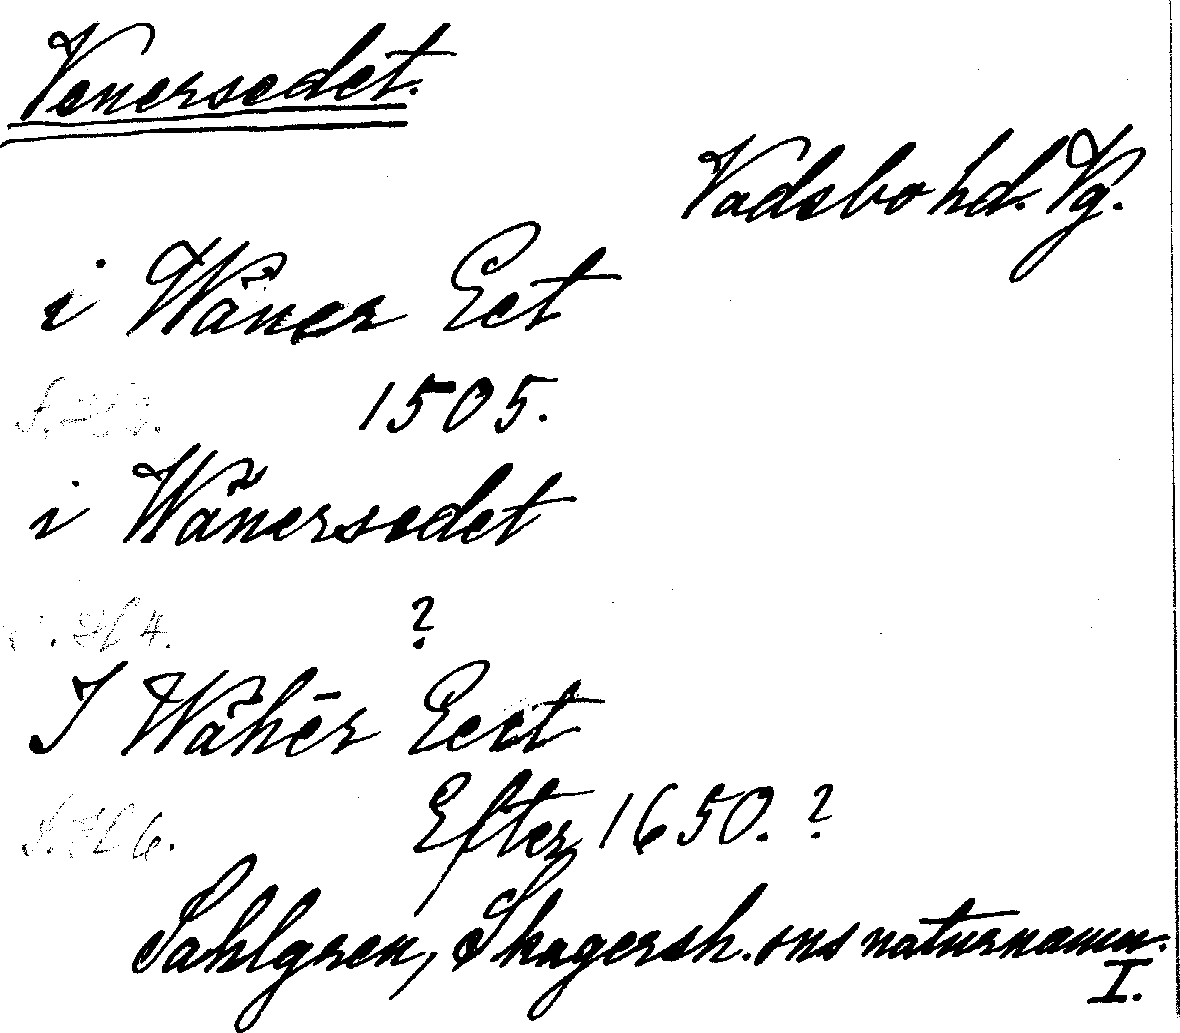 Venersedet.
Vadsbo hd. Vg.
i Wäner Eet
S. H 3. 1505.
i Wänersedet
S. H 4. ?
I Wähēr Eeet
S. H 6. Efter 1650. ?
Sahlgren, Skagersh. ons naturnamn.
I.